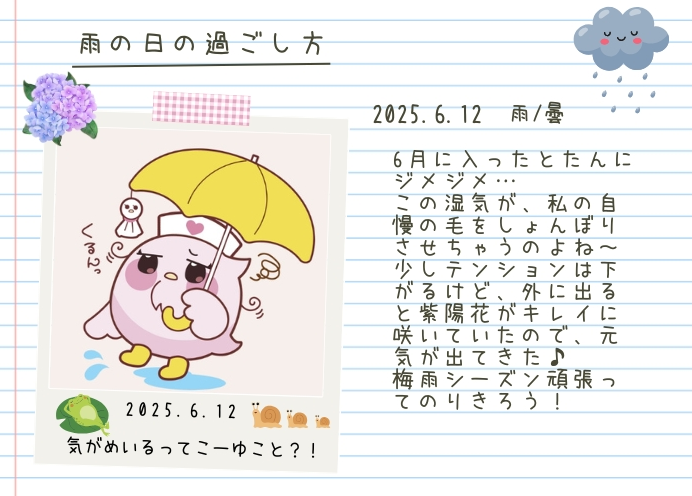 雨の日の過ごし方
2025.6.12 雨/曇
6月に入ったとたんに
ジメジメ…
この湿気が、私の自
慢の毛をしょんぼり
させちゃうのよね～
少しテンションは下
がるけど、外に出る
と紫陽花がキレイに
咲いていたので、元
気が出てきた♪
梅雨シーズン頑張っ
てのりきろう！
くるんっ
2025.6.12
気がめいるってこーゆこと？！